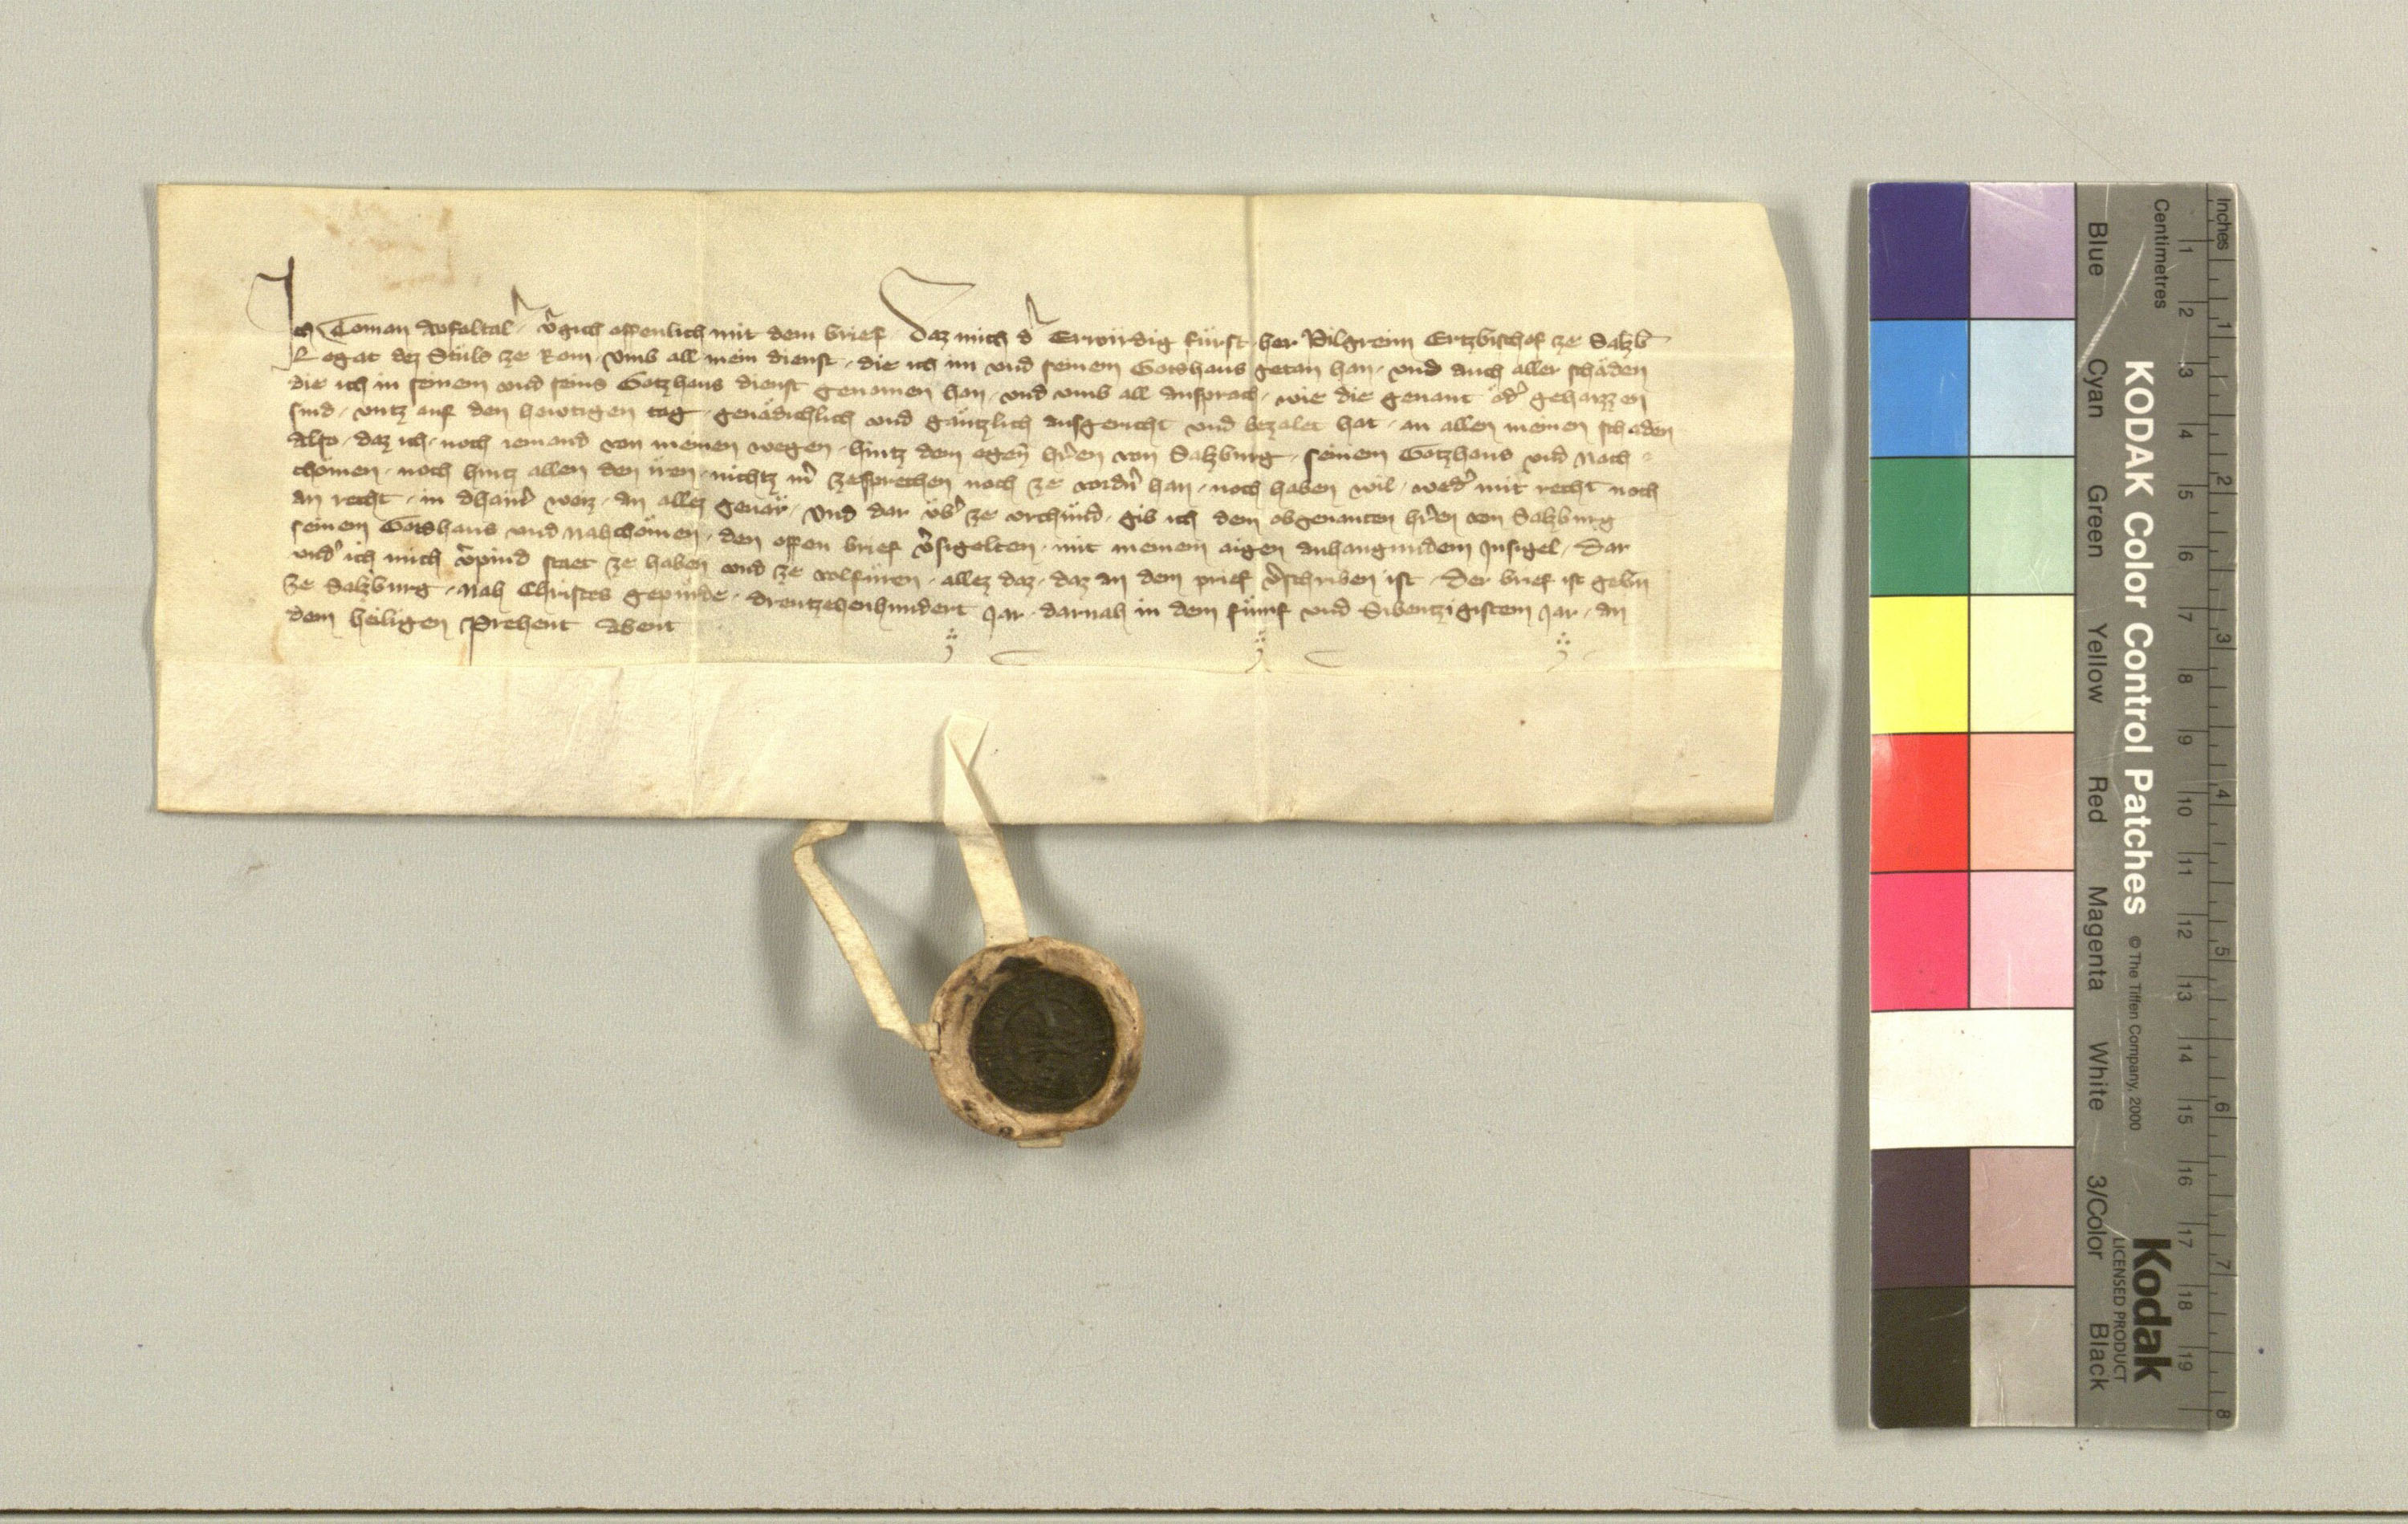 Ich Toman Apfaltal᷑ v᷑gich offenlich mit dem brief · Daz mich d᷑ Erwirdig fürst her Pilgreim Ertzbischof ze Salzb̄
Legat dez Stůls ze Rom · vmb all mein dienst · die ich im vnd seinem Gotshaus getan han · vnd auch aller schäden
die ich in seinem vnd seins Gotzhaus dienst genomen han · vnd vmb all ansprach · wie die genant od᷑ gehaizzen
sind · vntz auf den hewtigen tag · genädichlich vnd gäntzlich ausgericht vnd bezalet hat · an allen meinen schaden
Also · daz ich · noch iemand von meinen wegen · hintz dem egen̄ hr̄en von Salzburg · seinem Gotzhaus vnd Nach
chömen · noch hintz allen den iren · nichtz m᷑ zesprechen noch ze vordn̄ han · noch haben wil · wed᷑ mit recht noch
an recht · in dhain᷑ weiz · an allez geuär · Vnd dar vb᷑ ze vrchünd · gib ich dem obgenanten hr̄en von Salzburg
seinem Gotshaus vnd Nahchömen · den offen brief v᷑sigelten · mit meinem aigen anhangundem Jnsigel · Dar
vnd᷑ ich mich v᷑pind staet ze haben vnd ze volfüren · allez daz · daz an dem prief v᷑schriben ist · Der brief ist gebn̄
ze Salzburg · Nah Christes gepürde · dreutzehenhundert Jar · darnah in dem fümf vnd Sibentzigistem Jar · an
dem heiligen Prehent Abent
KODAK Color Control Patches © The Tiffen Company, 2000
Kodak
LICENSED PRODUCT
Blue Cyan Green Yellow Red Magenta White 3/Color Black
Centimetres 1 2 3 4 5 6 7 8 9 10 11 12 13 14 15 16 17 18 19
Inches 1 2 3 4 5 6 7 8